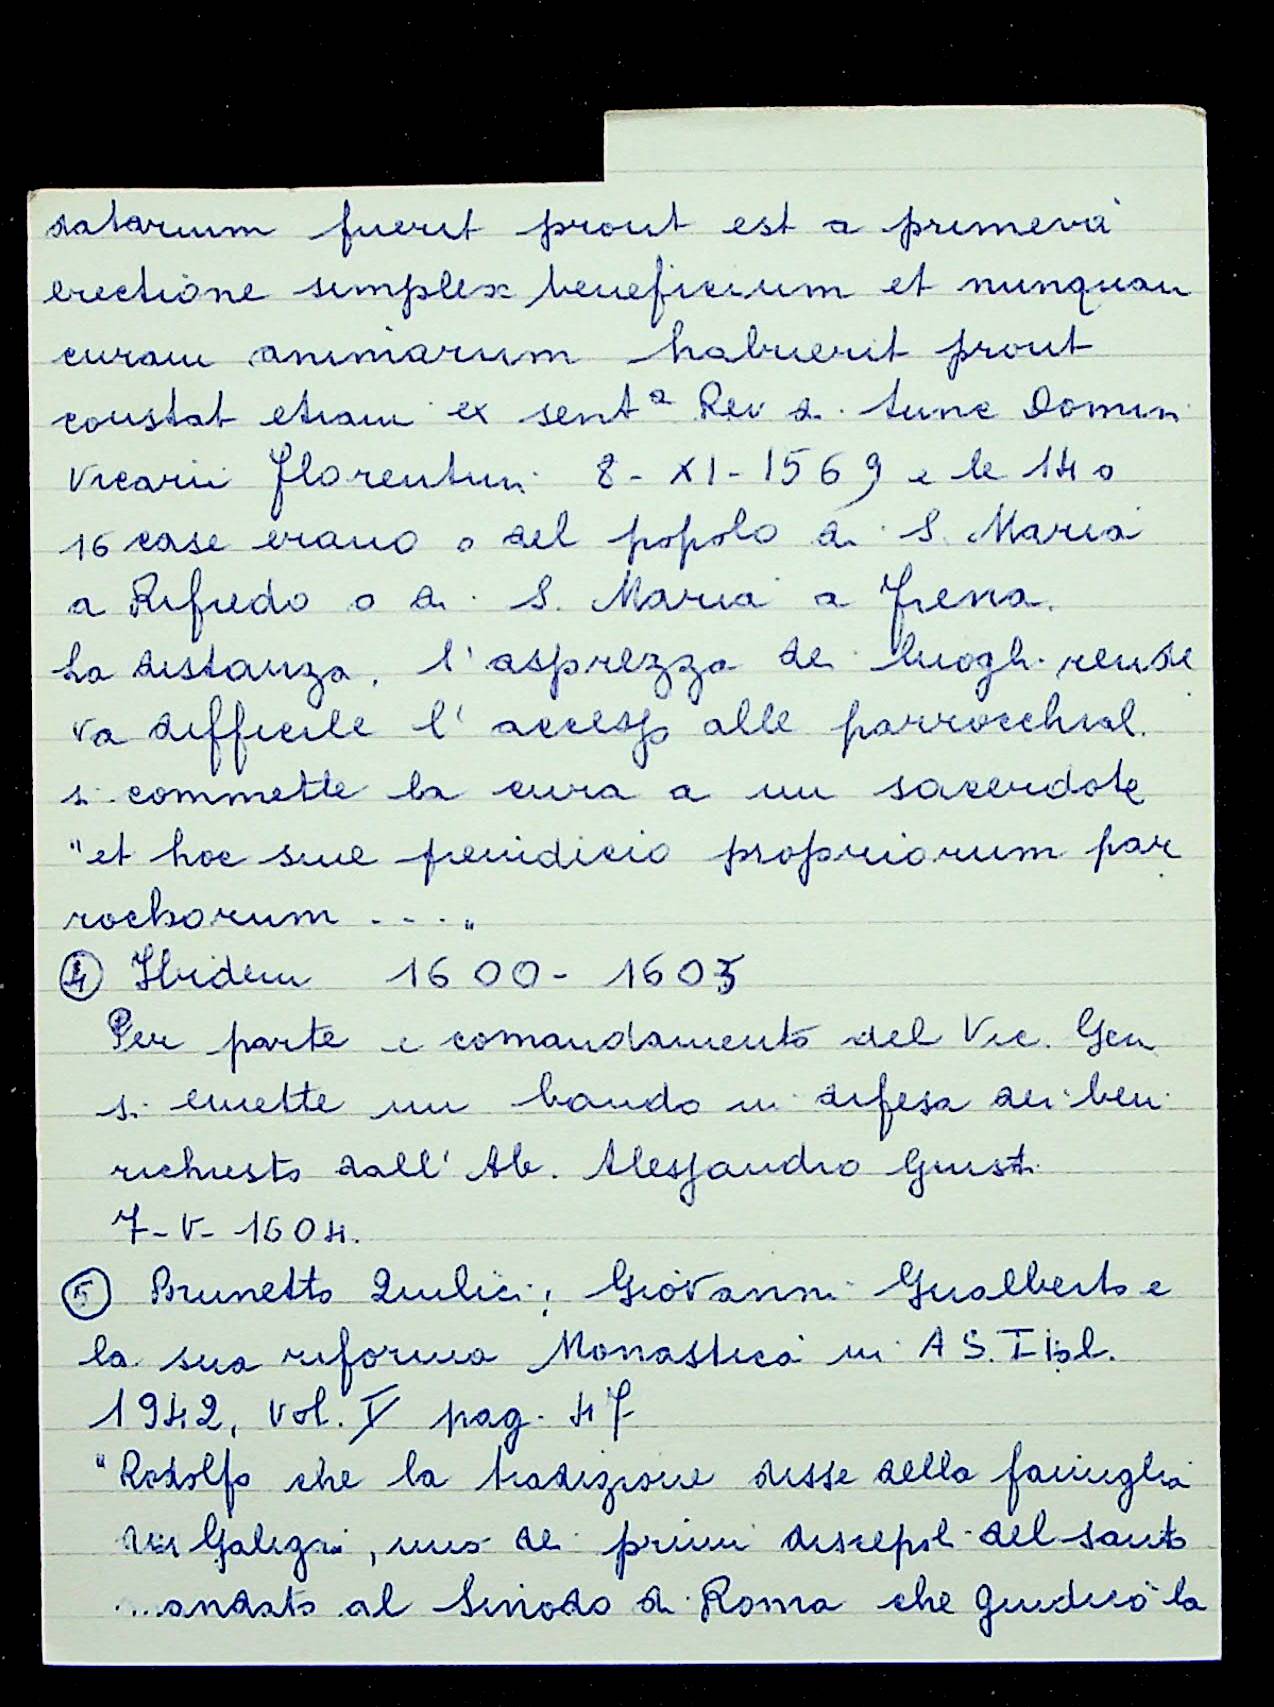 satarium fuerit prout est a primeva
erectione simplex beneficium et nunquam
curam animarum habuerit prout
constat etiam ex sentᵃ Rev di tunc Domini
Vicarii Florentini 8-XI-1569 e le 14 o
16 case erano o del popolo di S. Maria
a Rifredo o di S. Maria a Frena.
La distanza, l'asprezza dei luoghi rende
va difficile l'accesso alle parrocchial.
si commette la cura a un sacerdote
"et hoc sine preiudicio propriorum par
rochorum ...."
④ Ibidem 1600-1605
Per parte e comandamento del Vic. Gen
si emette un bando in difesa dei beni
richiesto dall'Ab. Alessandro Giusti
7-V-1604.
⑤ Brunetto Quilici; Giovanni Gualberto e
la sua riforma Monastica in A S. Ital.
1942, vol. V pag. 47
"Rodolfo che la tradizione disse della famiglia
dei Galigai, uno dei primi discepoli del santo
...andato al Sinodo di Roma che giudicò la